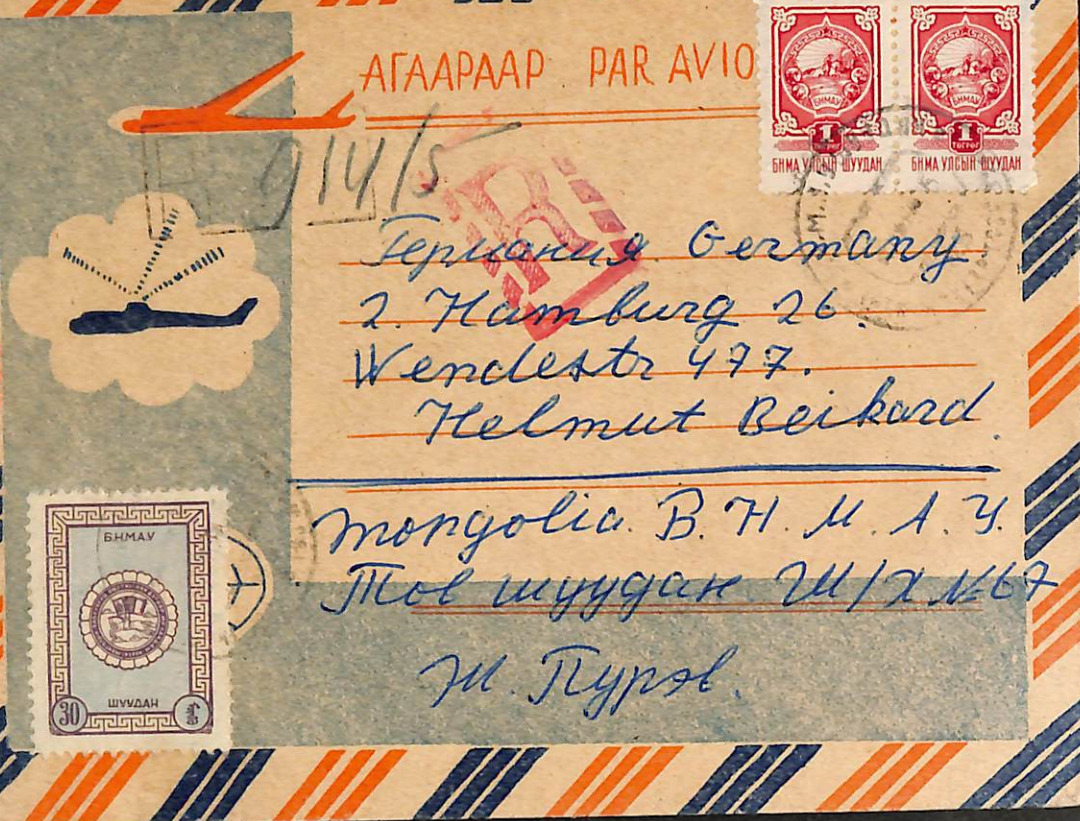 АГААРААР PAR AVIO
БНМАУ
1
ТӨГРӨГ
БНМА УЛСЫН ШУУДАН
БНМАУ
1
ТӨГРӨГ
БНМА УЛСЫН ШУУДАН
914/5
R
Германия. Germany
2. Hamburg 26.
Wendestr 477.
Helmut Beikard.
Mongolia. Б. Н. М. А. У.
Төв шуудан Ш/Х №67
Ж. Пүрэв.
Б.Н.М.А.У
ШУУДАН
30